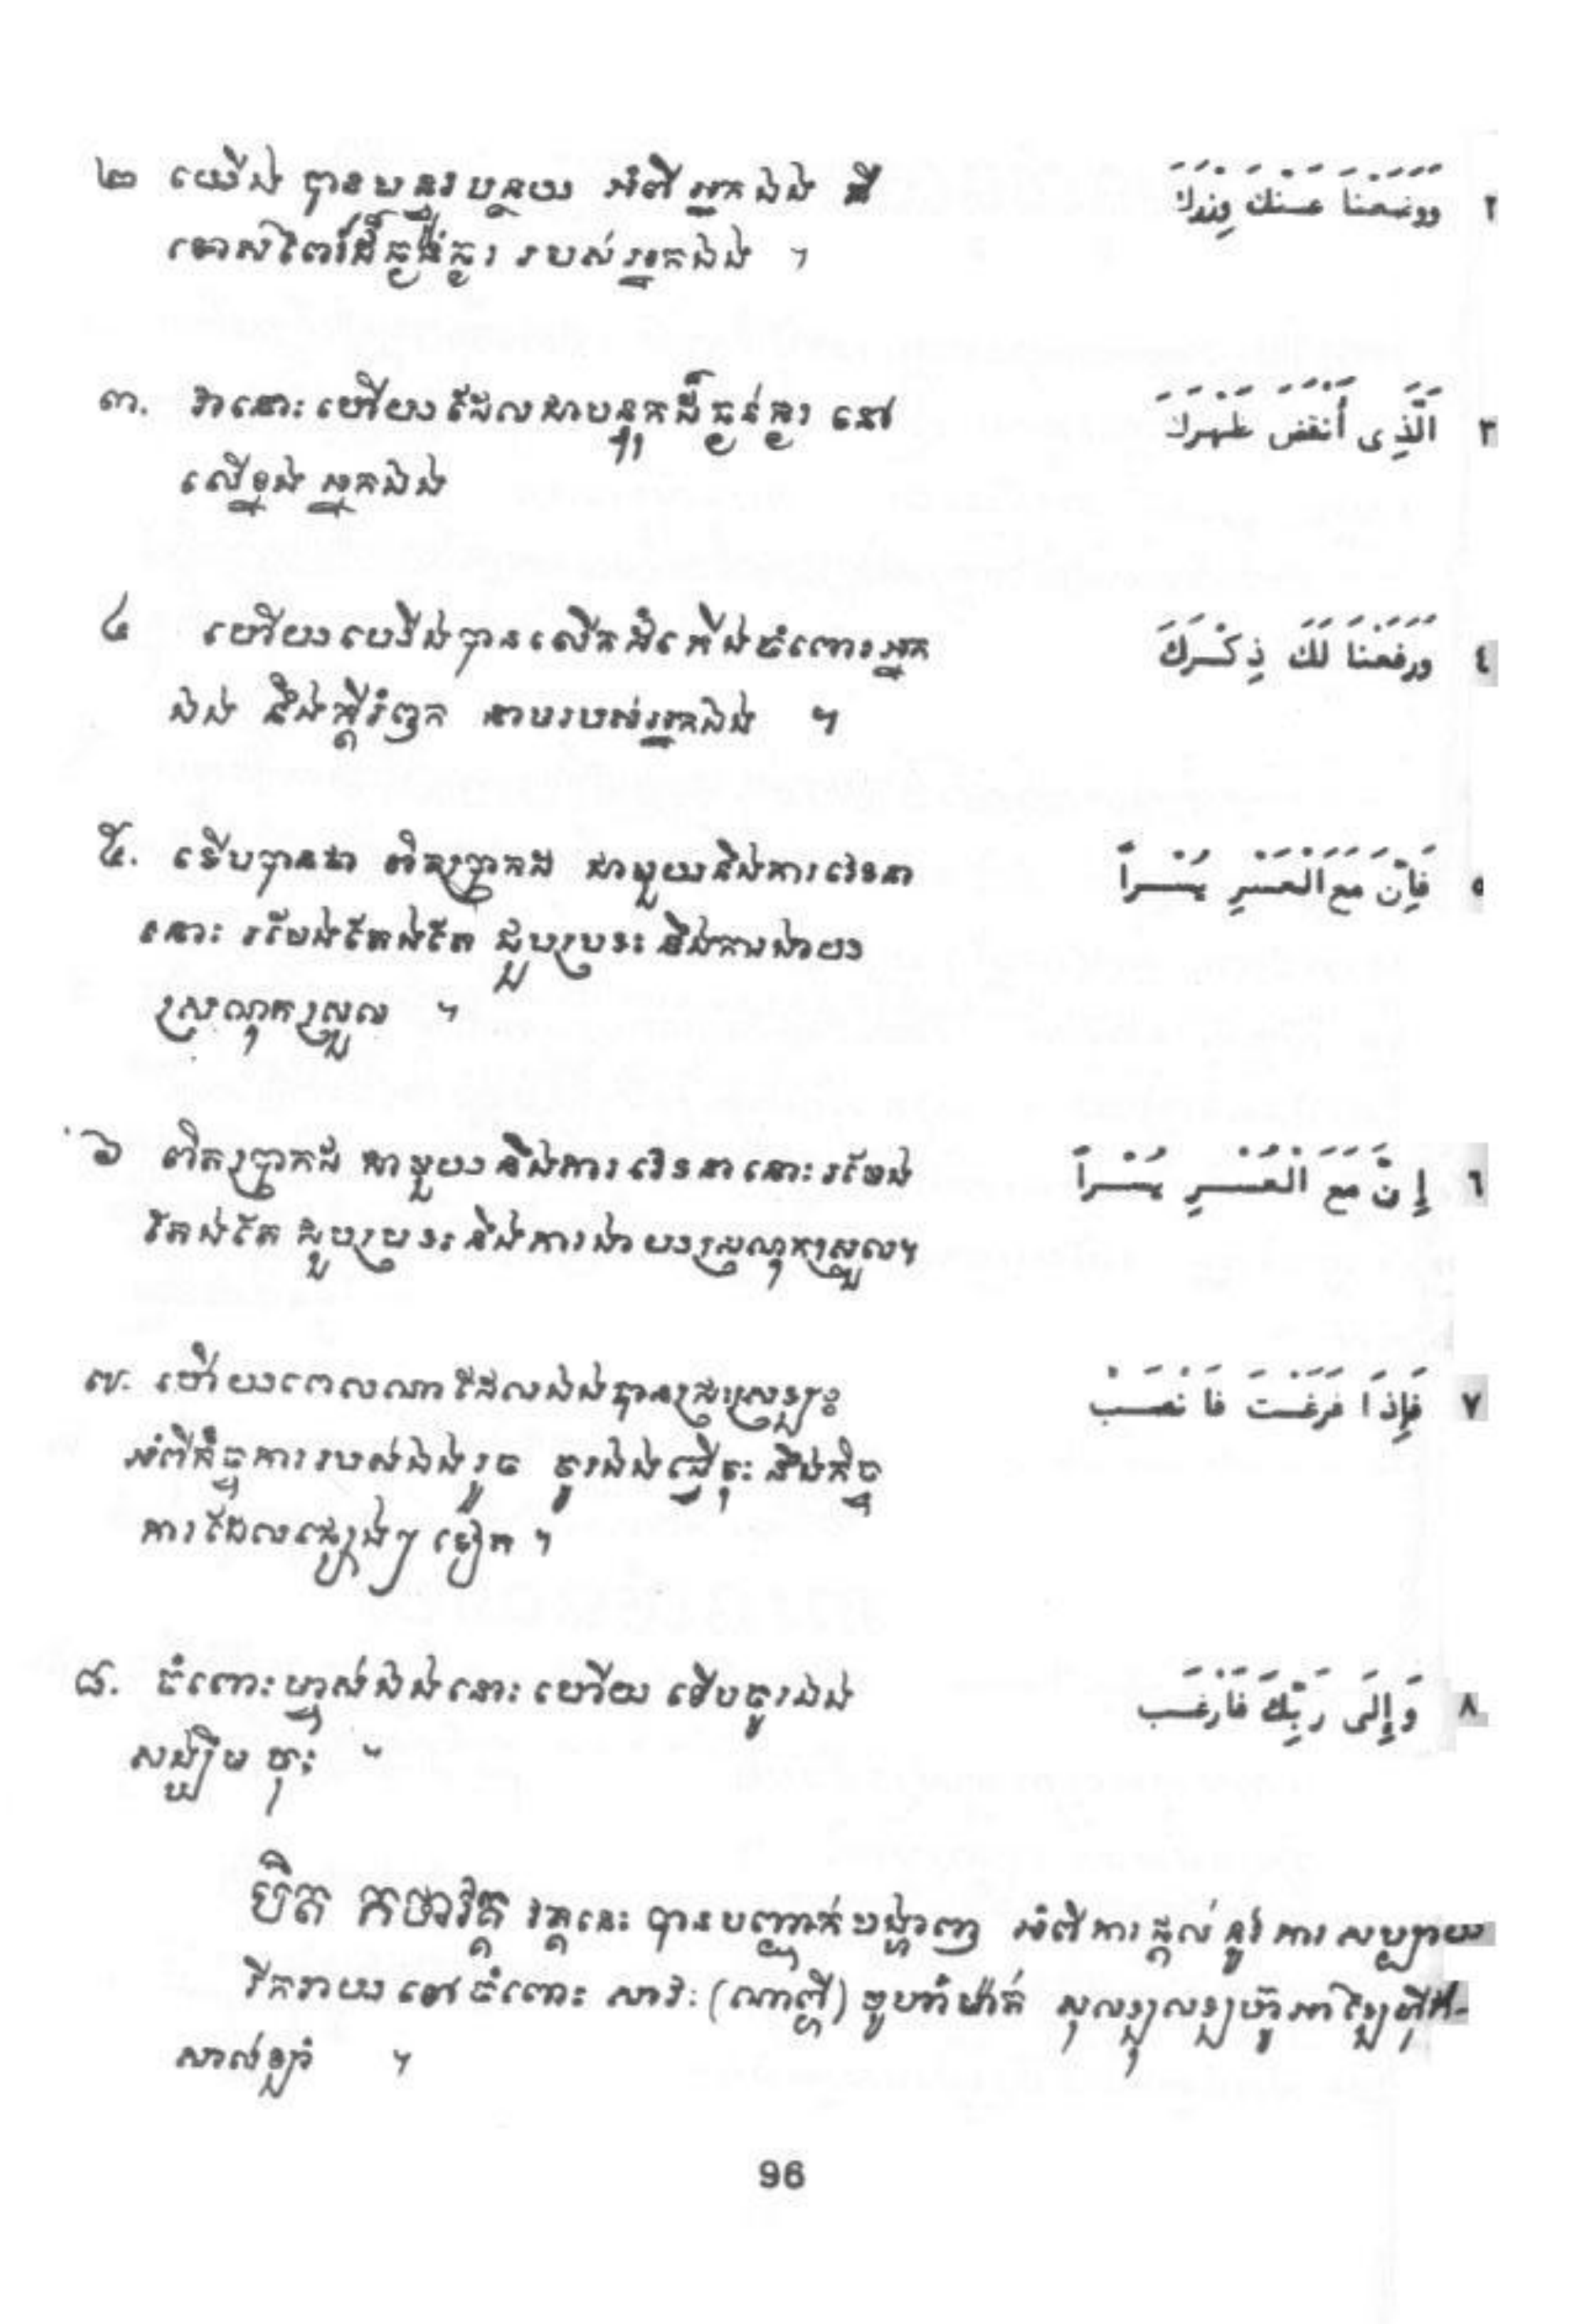 ២ យើង បានបន្ធូរបន្ថយ អំពី អ្នកឯង នឹ
ទោសពៃរ៍ដ៏ធ្ងន់ធ្ងរ របស់អ្នកឯង ។
وَوَضَعْنَا عَنْكَ وِزْرَكَ ٢
៣. វានោះហើយដែលជាបន្ទុកដ៏ធ្ងន់ធ្ងរ នៅ
លើខ្នង អ្នកឯង
الَّذِى أَنْقَضَ ظَهْرَكَ ٣
៤ ហើយយើងបានលើកដំកើងចំពោះអ្នក
ឯង នឹងក្ដីរំឭក នាមរបស់អ្នកឯង ។
وَرَفَعْنَا لَكَ ذِكْرَكَ ٤
៥. ទើបបានជា ពិតប្រាកដ ជាមួយនឹងការវេទនា
នោះ រមែងតែងតែ ជួបប្រទះ នឹងការងាយ
ស្រណុកស្រួល ។
فَإِنَّ مَعَ الْعُسْرِ يُسْراً ٥
៦ ពិតប្រាកដ ជាមួយ នឹងការ វេទនា នោះ រមែង
តែងតែ ជួបប្រទះ នឹងការងាយស្រណុកស្រួល។
إِنَّ مَعَ الْعُسْرِ يُسْراً ٦
៧. ហើយពេលណា ដែលឯងបាន
អំពីកិច្ចការ របស់ឯងរួច ចូរឯងធ្វើចុះ នឹងកិច្ច
ការ ដែលផ្សេងៗ ទៀត ។
فَإِذَا فَرَغْتَ فَانْصَبْ ٧
៨. ចំពោះម្ចាស់ឯងនោះ ហើយ ទើបចូរឯង
សង្ឃឹម ចុះ ។
وَإِلَى رَبِّكَ فَارْغَب ٨
បិត កថាវគ្គ វគ្គនេះ បានបញ្ជាក់បង្ហាញ អំពីការផ្ដល់ នូវការ សប្បាយ
រីករាយ ទៅចំពោះ សាវៈ (ណាព្ពី) មូហាំម៉ាត់
សាល់ឡាំ ។
96